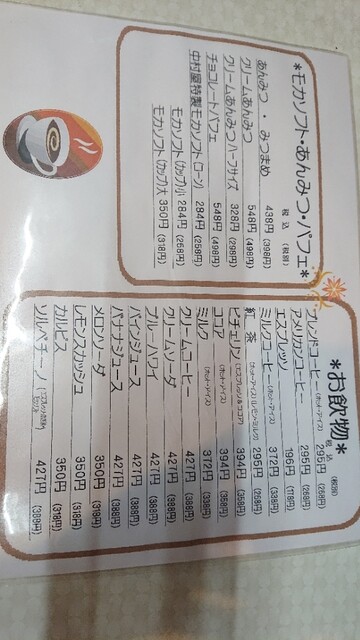 *モカソフト・あんみつ・パフェ*
税込 (税別)
あんみつ・みつまめ 438円 (398円)
クリームあんみつ 548円 (498円)
クリームあんみつハーフサイズ 328円 (298円)
チョコレートパフェ 548円 (498円)
中村屋特製モカソフト(コーン) 284円 (258円)
モカソフト(カップ)小 284円 (258円)
モカソフト(カップ)大 350円 (318円)
*お飲物*
税込 (税別)
ブレンドコーヒー(ホット・アイス) 295円 (268円)
アメリカンコーヒー 295円 (268円)
エスプレッソ 196円 (178円)
ミルクコーヒー(ホット・アイス) 372円 (338円)
紅茶 (ホット・アイス)(レモン・ミルク) 295円 (268円)
ビチェリン(エスプレッソ&ココア) 394円 (358円)
ココア (ホット・アイス) 394円 (358円)
ミルク (ホット・アイス) 372円 (338円)
クリームコーヒー 427円 (388円)
クリームソーダ 427円 (388円)
ブルーハワイ 427円 (388円)
パインジュース 427円 (388円)
バナナジュース 427円 (388円)
メロンソーダ 350円 (318円)
レモンスカッシュ 350円 (318円)
カルピス 350円 (318円)
ソルペチーノ 427円 (388円)